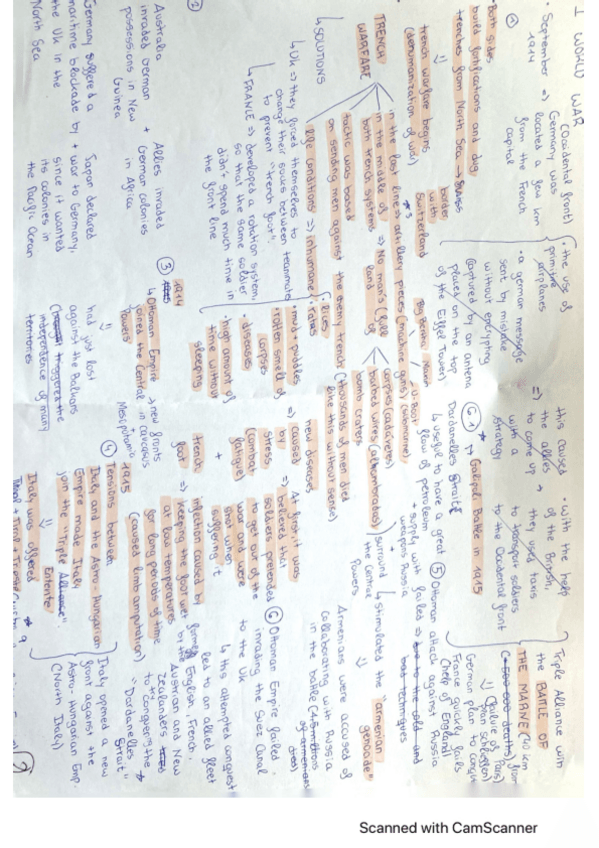 I WORLD WAR
(Occidental front)
①
· September => Germany was
1914 located a few km
from the French
capital
· the use of
primitive
airplanes
· a german message
sent by mistake
without encrypting
(captured by an antena
placed on the top
of the Eiffel Tower)
=>
this caused
the allies
to come up
with a
strategy
· with the help
of the British,
they used taxis
to transport soldiers
to the Occidental front
Triple Alliance with
the BATLE OF
THE MARNE (40 km
from Paris)
(500 000 deaths)
(failure of
plan schlieffen)
German plan to conquer
France quickly fails
(help of England)
Both sides
build fortifications and dug
trenches from North Sea → Swiss
border
with
Switzerland
trench warfare begins
(demonization of war)
TRENCH
WARFARE
in the last lines artillery pieces (machine guns)
Big Berta
U-Boot
(submarine)
in the middle of => No man's
both trench systems land
corpses (cadáveres)
barbed wires (alambradas)
bomb craters
tactic was based
on sending men against the enemy trench (thousands of men died
like this without sense)
life conditions => inhumane
· Lices
· rates
· mud + puddles
· rotten smell of
corpses
· diseases
· high amount of
time without
sleeping
=>
new diseases
caused
by
stress,
(combat
fatigue)
At first, it was
believed that
soldiers pretended
to get out of the
war and were
shot when
suffering it
+
trench
foot =>
infection caused by
keeping the foot wet
at low temperatures
for long periods of time
(caused limb amputation)
↳ SOLUTIONS
↳ UK => they forced themselves to
change their socks between teammates
to prevent "trench foot".
↳ FRANCE => developed a rotation system,
so that the same soldier
didn't spend much time in
the front line
②
Australia
invaded German
possessions in New
Guinea
+
Allies invaded
German colonies
in Africa
Germany suffered a
maritime blockade by
the UK in the
North Sea
+
Japon declared
war to Germany,
since it wanted
its colonies in
the Pacific Ocean
③ 1914
↳ Ottoman Empire => new fronts
joined the Central in caucasus
Powers
Mesopotamia
had just lost
against the Balkans
triggered the
independence of many
territories
④ 1915
Tensions between
Italy and the Astro-Hungarian
Empire made Italy
join the "Triple
Entente"
Italy was offered
Italy opened a new
front against the
Astro-Hungarian Emp.
(North Italy)
⑥.1
Galipoli Batle in 1915
Dardanelles Strait
↳ useful to have a great
flow of petroleum
+ supply with
weapons Russia
⑤ Ottoman attack against Russia
failed => to the cold and
bad techniques
surround
the Central
Powers
↳ stimulated the "armenian
genocide"
Armenians were accused of
collaborating with Russia
in the battle (1.5 millions
of armenians
died)
⑥ Ottoman Empire failed
invading the Suez Canal
to the UK
↳ this attempted conquest
led to an allied fleet
formed by the English, French,
Austrian and New
Zealanders
to conquer the
"Dardanelles
Strait"
Scanned with CamScanner